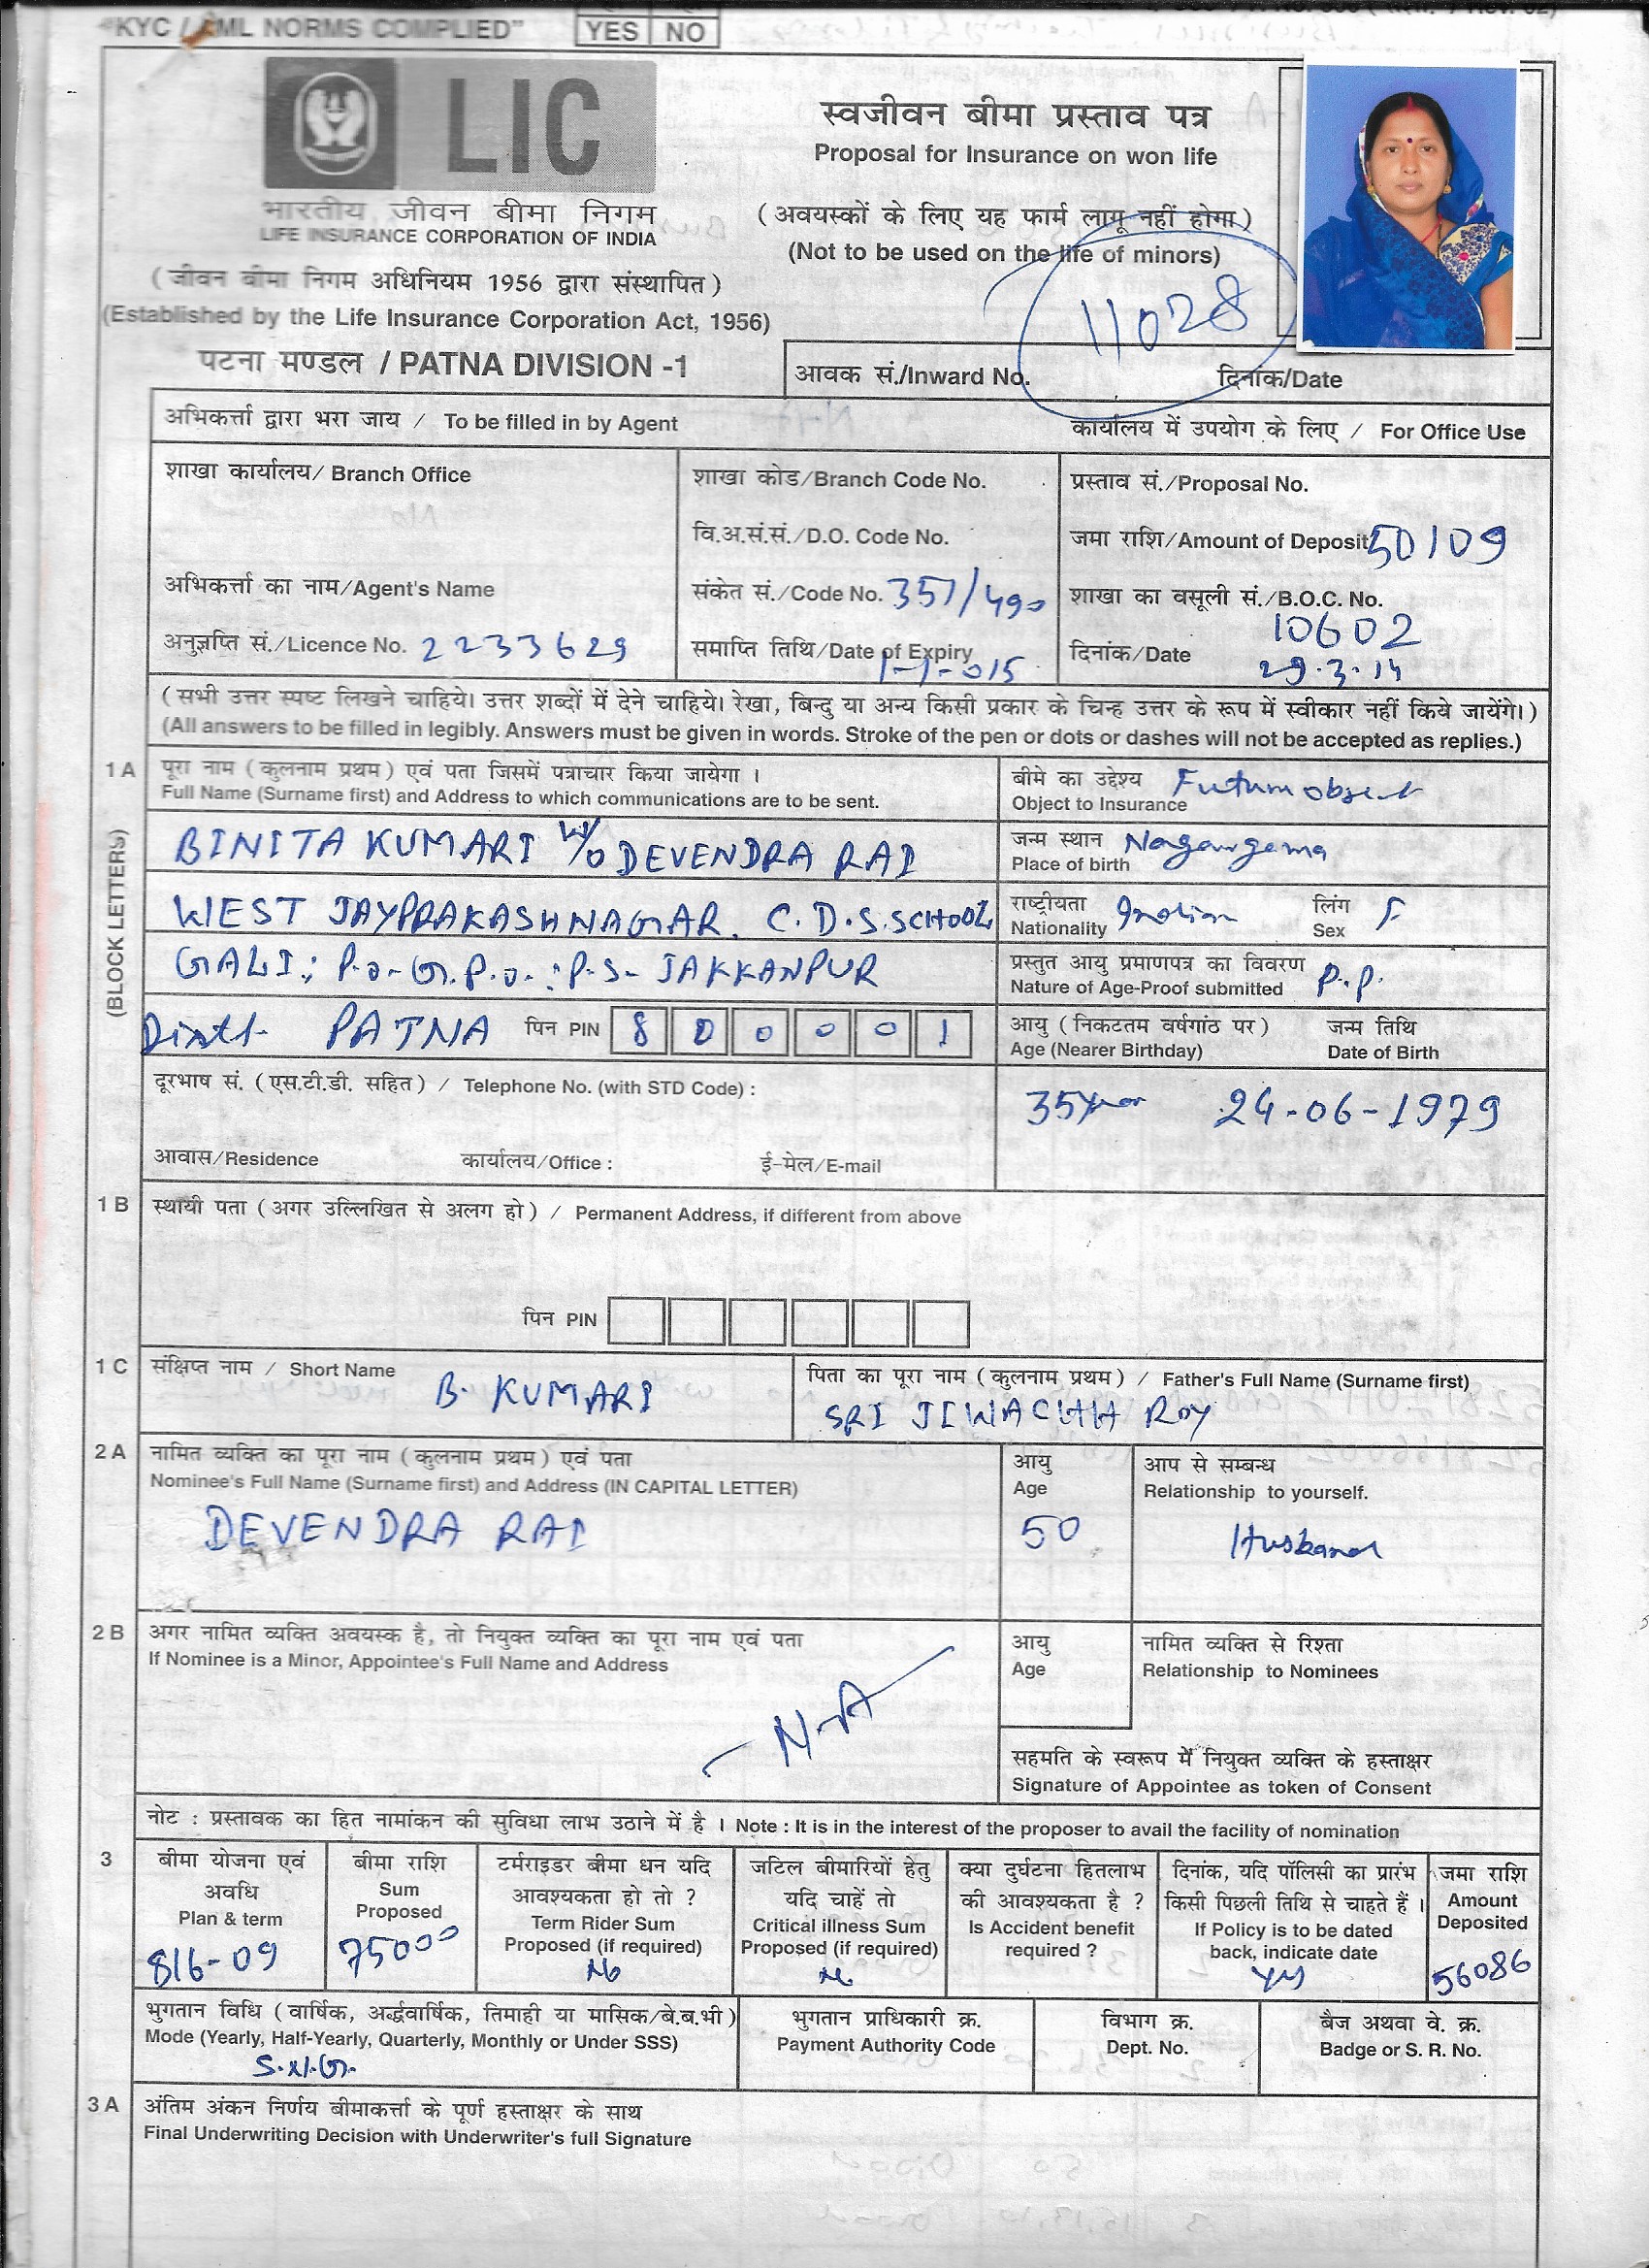 "KYC / AML NORMS COMPLIED" YES NO
LIC
भारतीय जीवन बीमा निगम
LIFE INSURANCE CORPORATION OF INDIA
(जीवन बीमा निगम अधिनियम 1956 द्वारा संस्थापित)
(Established by the Life Insurance Corporation Act, 1956)
पटना मण्डल / PATNA DIVISION -1
स्वजीवन बीमा प्रस्ताव पत्र
Proposal for Insurance on won life
(अवयस्कों के लिए यह फार्म लागू नहीं होगा)
(Not to be used on the life of minors)
11028
आवक सं./Inward No. दिनांक/Date
अभिकर्त्ता द्वारा भरा जाय / To be filled in by Agent कार्यालय में उपयोग के लिए / For Office Use
शाखा कार्यालय/ Branch Office शाखा कोड/Branch Code No. प्रस्ताव सं./Proposal No.
वि.अ.सं.सं./D.O. Code No. जमा राशि/Amount of Deposit 50109
अभिकर्त्ता का नाम/Agent's Name संकेत सं./Code No. 357/490 शाखा का वसूली सं./B.O.C. No.
10602
अनुज्ञप्ति सं./Licence No. 2233629 समाप्ति तिथि/Date of Expiry दिनांक/Date
1-1-015 29.3.14
(सभी उत्तर स्पष्ट लिखने चाहिये। उत्तर शब्दों में देने चाहिये। रेखा, बिन्दु या अन्य किसी प्रकार के चिन्ह उत्तर के रूप में स्वीकार नहीं किये जायेंगे।)
(All answers to be filled in legibly. Answers must be given in words. Stroke of the pen or dots or dashes will not be accepted as replies.)
1 A पूरा नाम (कुलनाम प्रथम) एवं पता जिसमें पत्राचार किया जायेगा ।
Full Name (Surname first) and Address to which communications are to be sent.
(BLOCK LETTERS)
BINITA KUMARI W/O DEVENDRA RAI
WEST JAYPRAKASHNAGAR. C.D.S.SCHOOL
GALI; P.O-G.P.O.; P.S- JAKKANPUR
Distt- PATNA पिन PIN 8 0 0 0 0 1
बीमे का उद्देश्य
Object to Insurance
जन्म स्थान
Place of birth
राष्ट्रीयता लिंग
Nationality Indian Sex F
प्रस्तुत आयु प्रमाणपत्र का विवरण
Nature of Age-Proof submitted P.P.
आयु (निकटतम वर्षगांठ पर) जन्म तिथि
Age (Nearer Birthday) Date of Birth
35 24-06-1979
दूरभाष सं. (एस.टी.डी. सहित) / Telephone No. (with STD Code) :
आवास/Residence कार्यालय/Office : ई-मेल/E-mail
1 B स्थायी पता (अगर उल्लिखित से अलग हो) / Permanent Address, if different from above
पिन PIN
1 C संक्षिप्त नाम / Short Name
B. KUMARI
पिता का पूरा नाम (कुलनाम प्रथम) / Father's Full Name (Surname first)
SRI JIWACHH ROY
2 A नामित व्यक्ति का पूरा नाम (कुलनाम प्रथम) एवं पता
Nominee's Full Name (Surname first) and Address (IN CAPITAL LETTER)
DEVENDRA RAI
आयु
Age
50
आप से सम्बन्ध
Relationship to yourself.
Husband
2 B अगर नामित व्यक्ति अवयस्क है, तो नियुक्त व्यक्ति का पूरा नाम एवं पता
If Nominee is a Minor, Appointee's Full Name and Address
N-A
आयु
Age
नामित व्यक्ति से रिश्ता
Relationship to Nominees
सहमति के स्वरूप में नियुक्त व्यक्ति के हस्ताक्षर
Signature of Appointee as token of Consent
नोट : प्रस्तावक का हित नामांकन की सुविधा लाभ उठाने में है । Note : It is in the interest of the proposer to avail the facility of nomination
3
बीमा योजना एवं
अवधि
Plan & term
816-09
बीमा राशि
Sum
Proposed
75000
टर्मराइडर बीमा धन यदि
आवश्यकता हो तो ?
Term Rider Sum
Proposed (if required)
No
जटिल बीमारियों हेतु
यदि चाहें तो
Critical illness Sum
Proposed (if required)
No
क्या दुर्घटना हितलाभ
की आवश्यकता है ?
Is Accident benefit
required ?
दिनांक, यदि पॉलिसी का प्रारंभ
किसी पिछली तिथि से चाहते हैं ।
If Policy is to be dated
back, indicate date
जमा राशि
Amount
Deposited
56086
भुगतान विधि (वार्षिक, अर्द्धवार्षिक, तिमाही या मासिक/बे.ब.भी)
Mode (Yearly, Half-Yearly, Quarterly, Monthly or Under SSS)
भुगतान प्राधिकारी क्र.
Payment Authority Code
विभाग क्र.
Dept. No.
बैज अथवा वे. क्र.
Badge or S. R. No.
3 A अंतिम अंकन निर्णय बीमाकर्त्ता के पूर्ण हस्ताक्षर के साथ
Final Underwriting Decision with Underwriter's full Signature